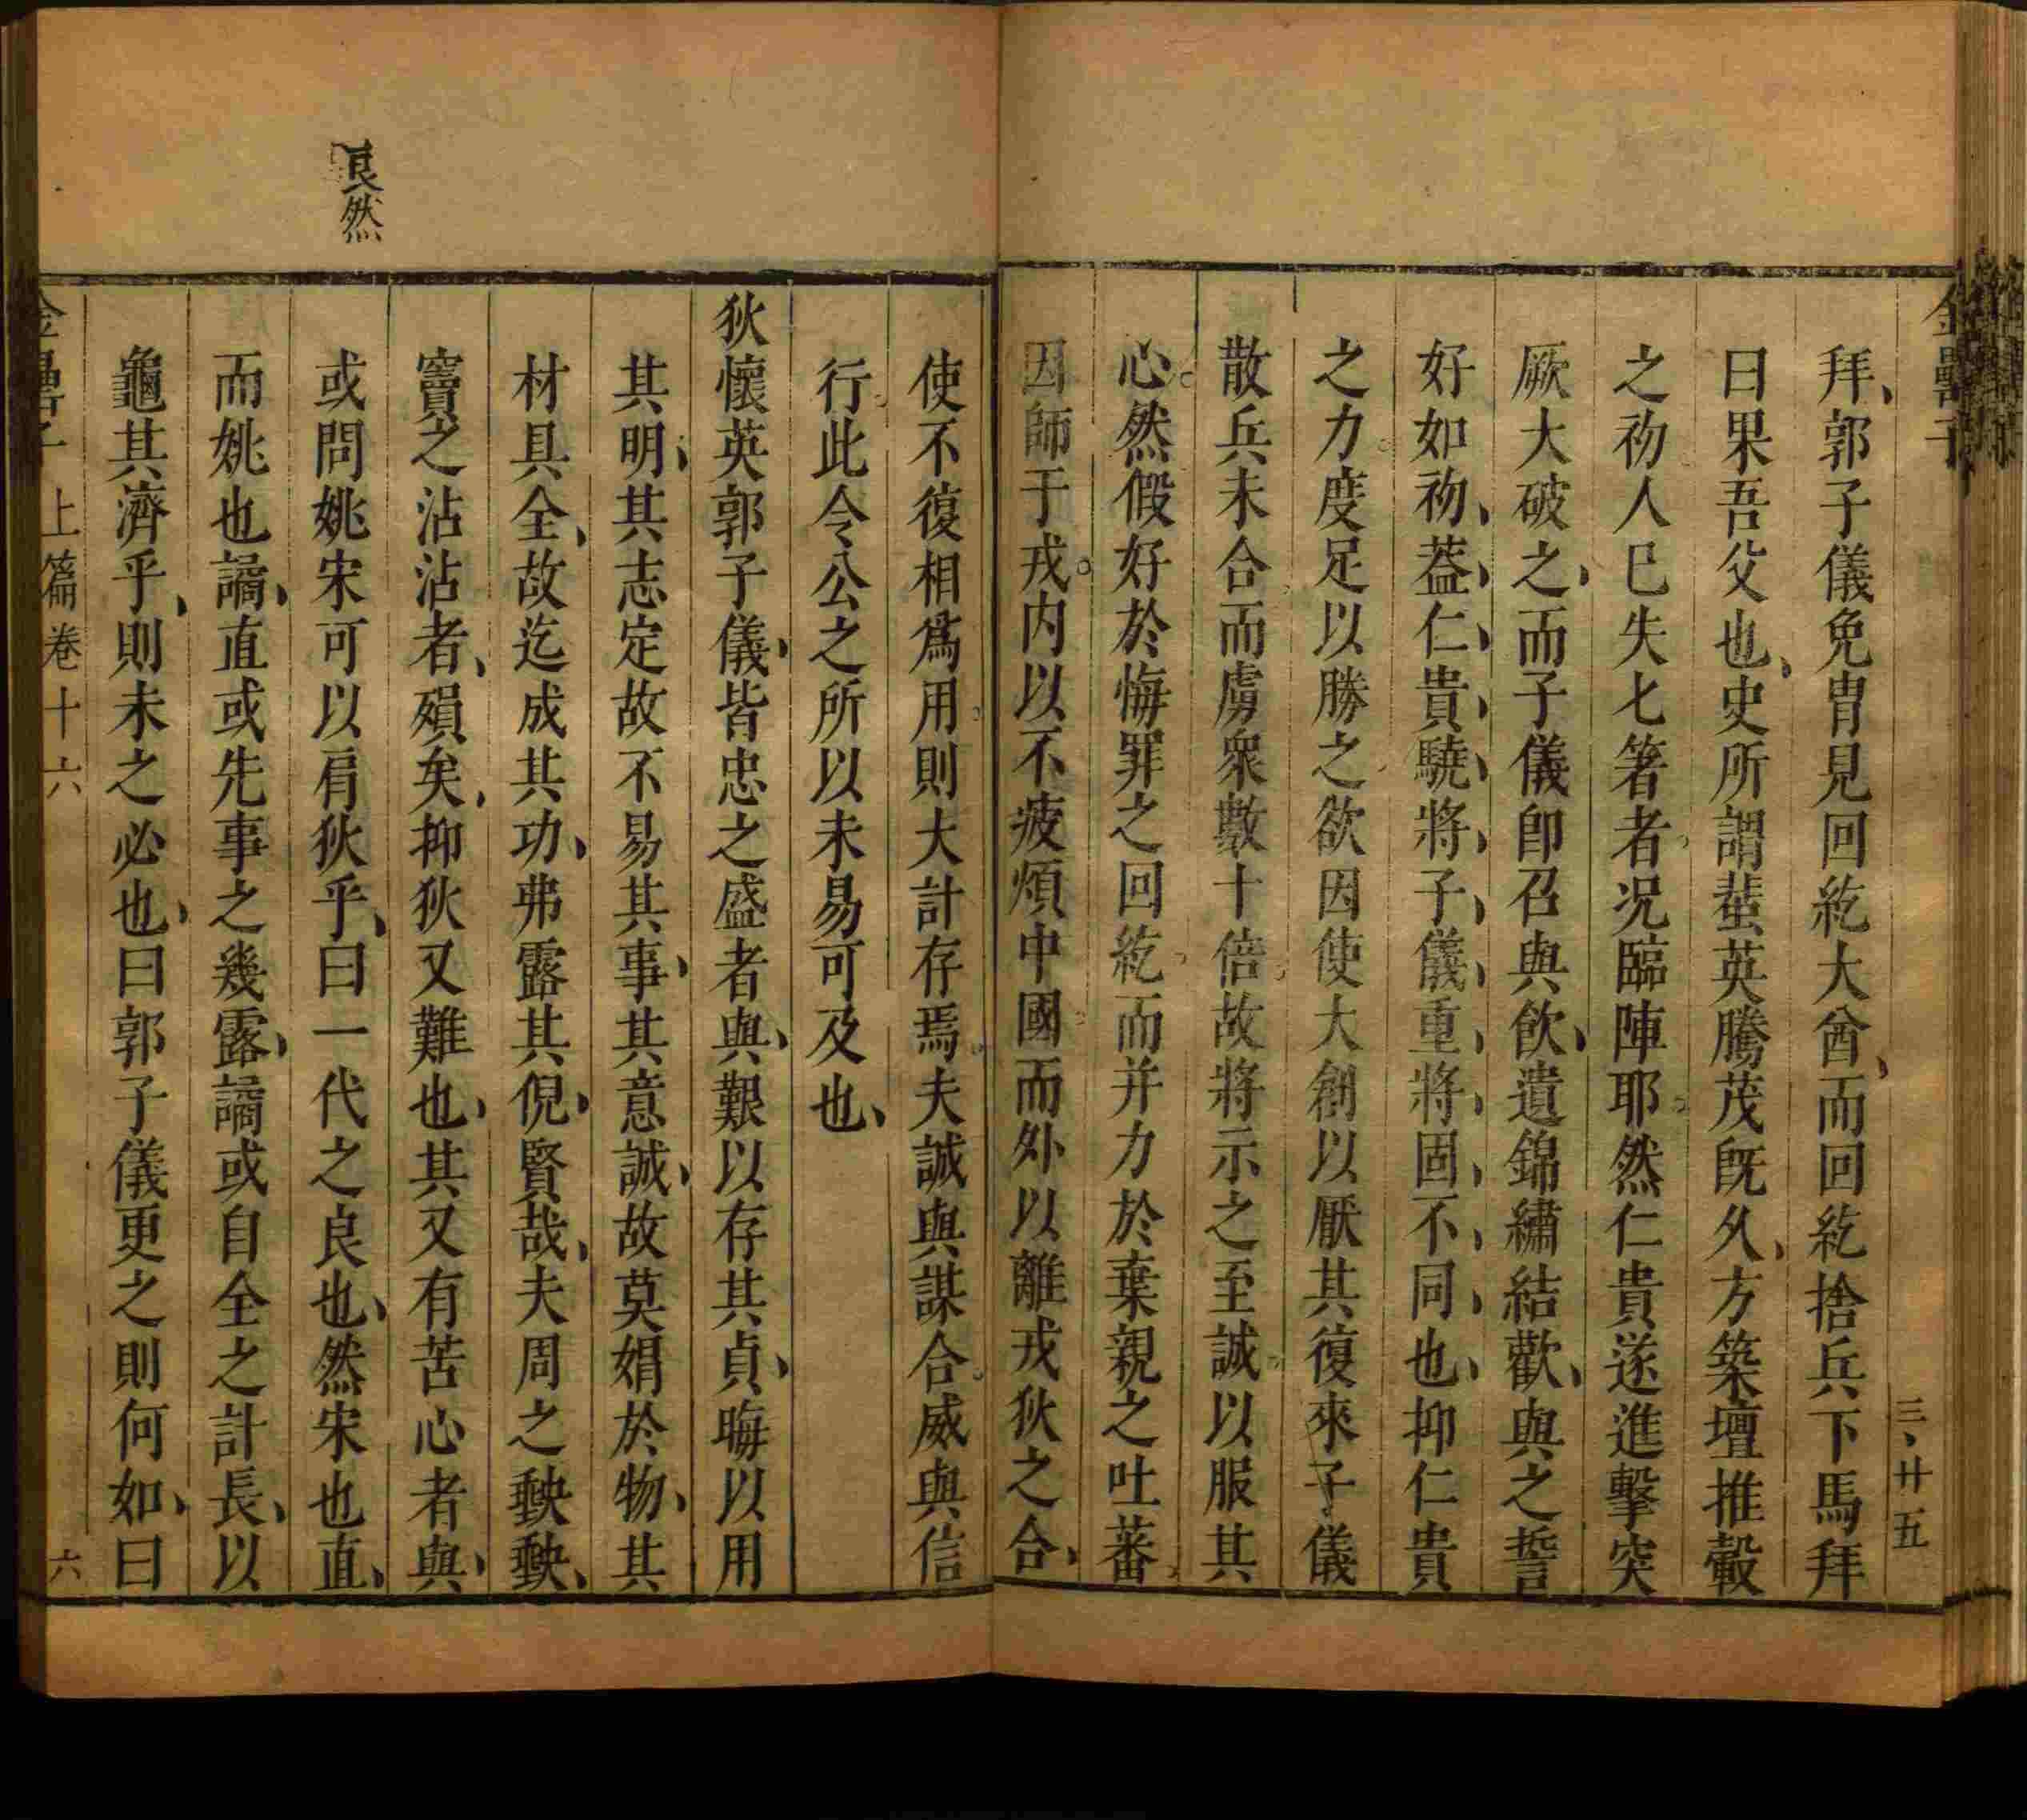 金罍子
三、廿五
拜、郭子儀免冑見回紇大酋、而回紇捨兵下馬拜
曰果吾父也、史所謂蜚英騰茂旣久、方築壇推轂
之初人巳失匕箸者况臨陣耶然仁貴遂進擊突
厥大破之、而子儀卽召與飲、遺錦繡結歡、與之誓
好如初、葢、仁、貴、驍、將、子、儀、重、將、固、不、同、也、抑仁貴
之力度足以勝之欲因使大創以厭其復來子儀
散兵未合而虜衆數十倍故將示之至誠以服其
心然假好於悔罪之回紇而并力於棄親之吐蕃
因師于戎内以不疲煩中國而外以離戎狄之合、
使不復相爲用則大計存焉夫誠與謀合威與信
行此令公之所以未易可及也、
狄懷英郭子儀、皆忠之盛者與、艱以存其貞、晦以用
其明、其志定故不易其事、其意誠、故莫娟於物、其
材具全、故迄成其功、弗露其倪、賢哉、夫周之軮軮、
竇之沾沾者、殞矣、抑狄又難也、其又有苦心者與、
或問姚宋可以肩狄乎、曰一代之良也、然宋也直、
而姚也譎、直或先事之幾露、譎或自全之計長、以
龜其濟乎、則未之必也、曰郭子儀更之則何如、曰
良然
金罍子
上篇卷十六
六